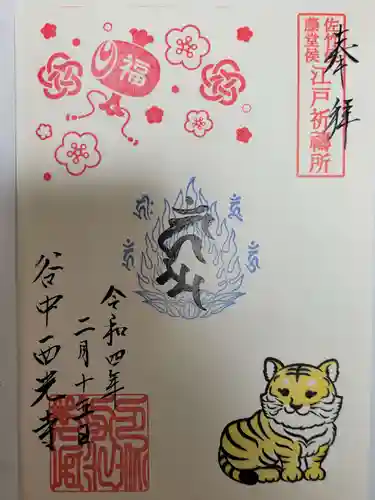 奉拝
佐竹
藤堂侯
江戸祈祷所
福
令和四年
二月十五日
谷中西光寺